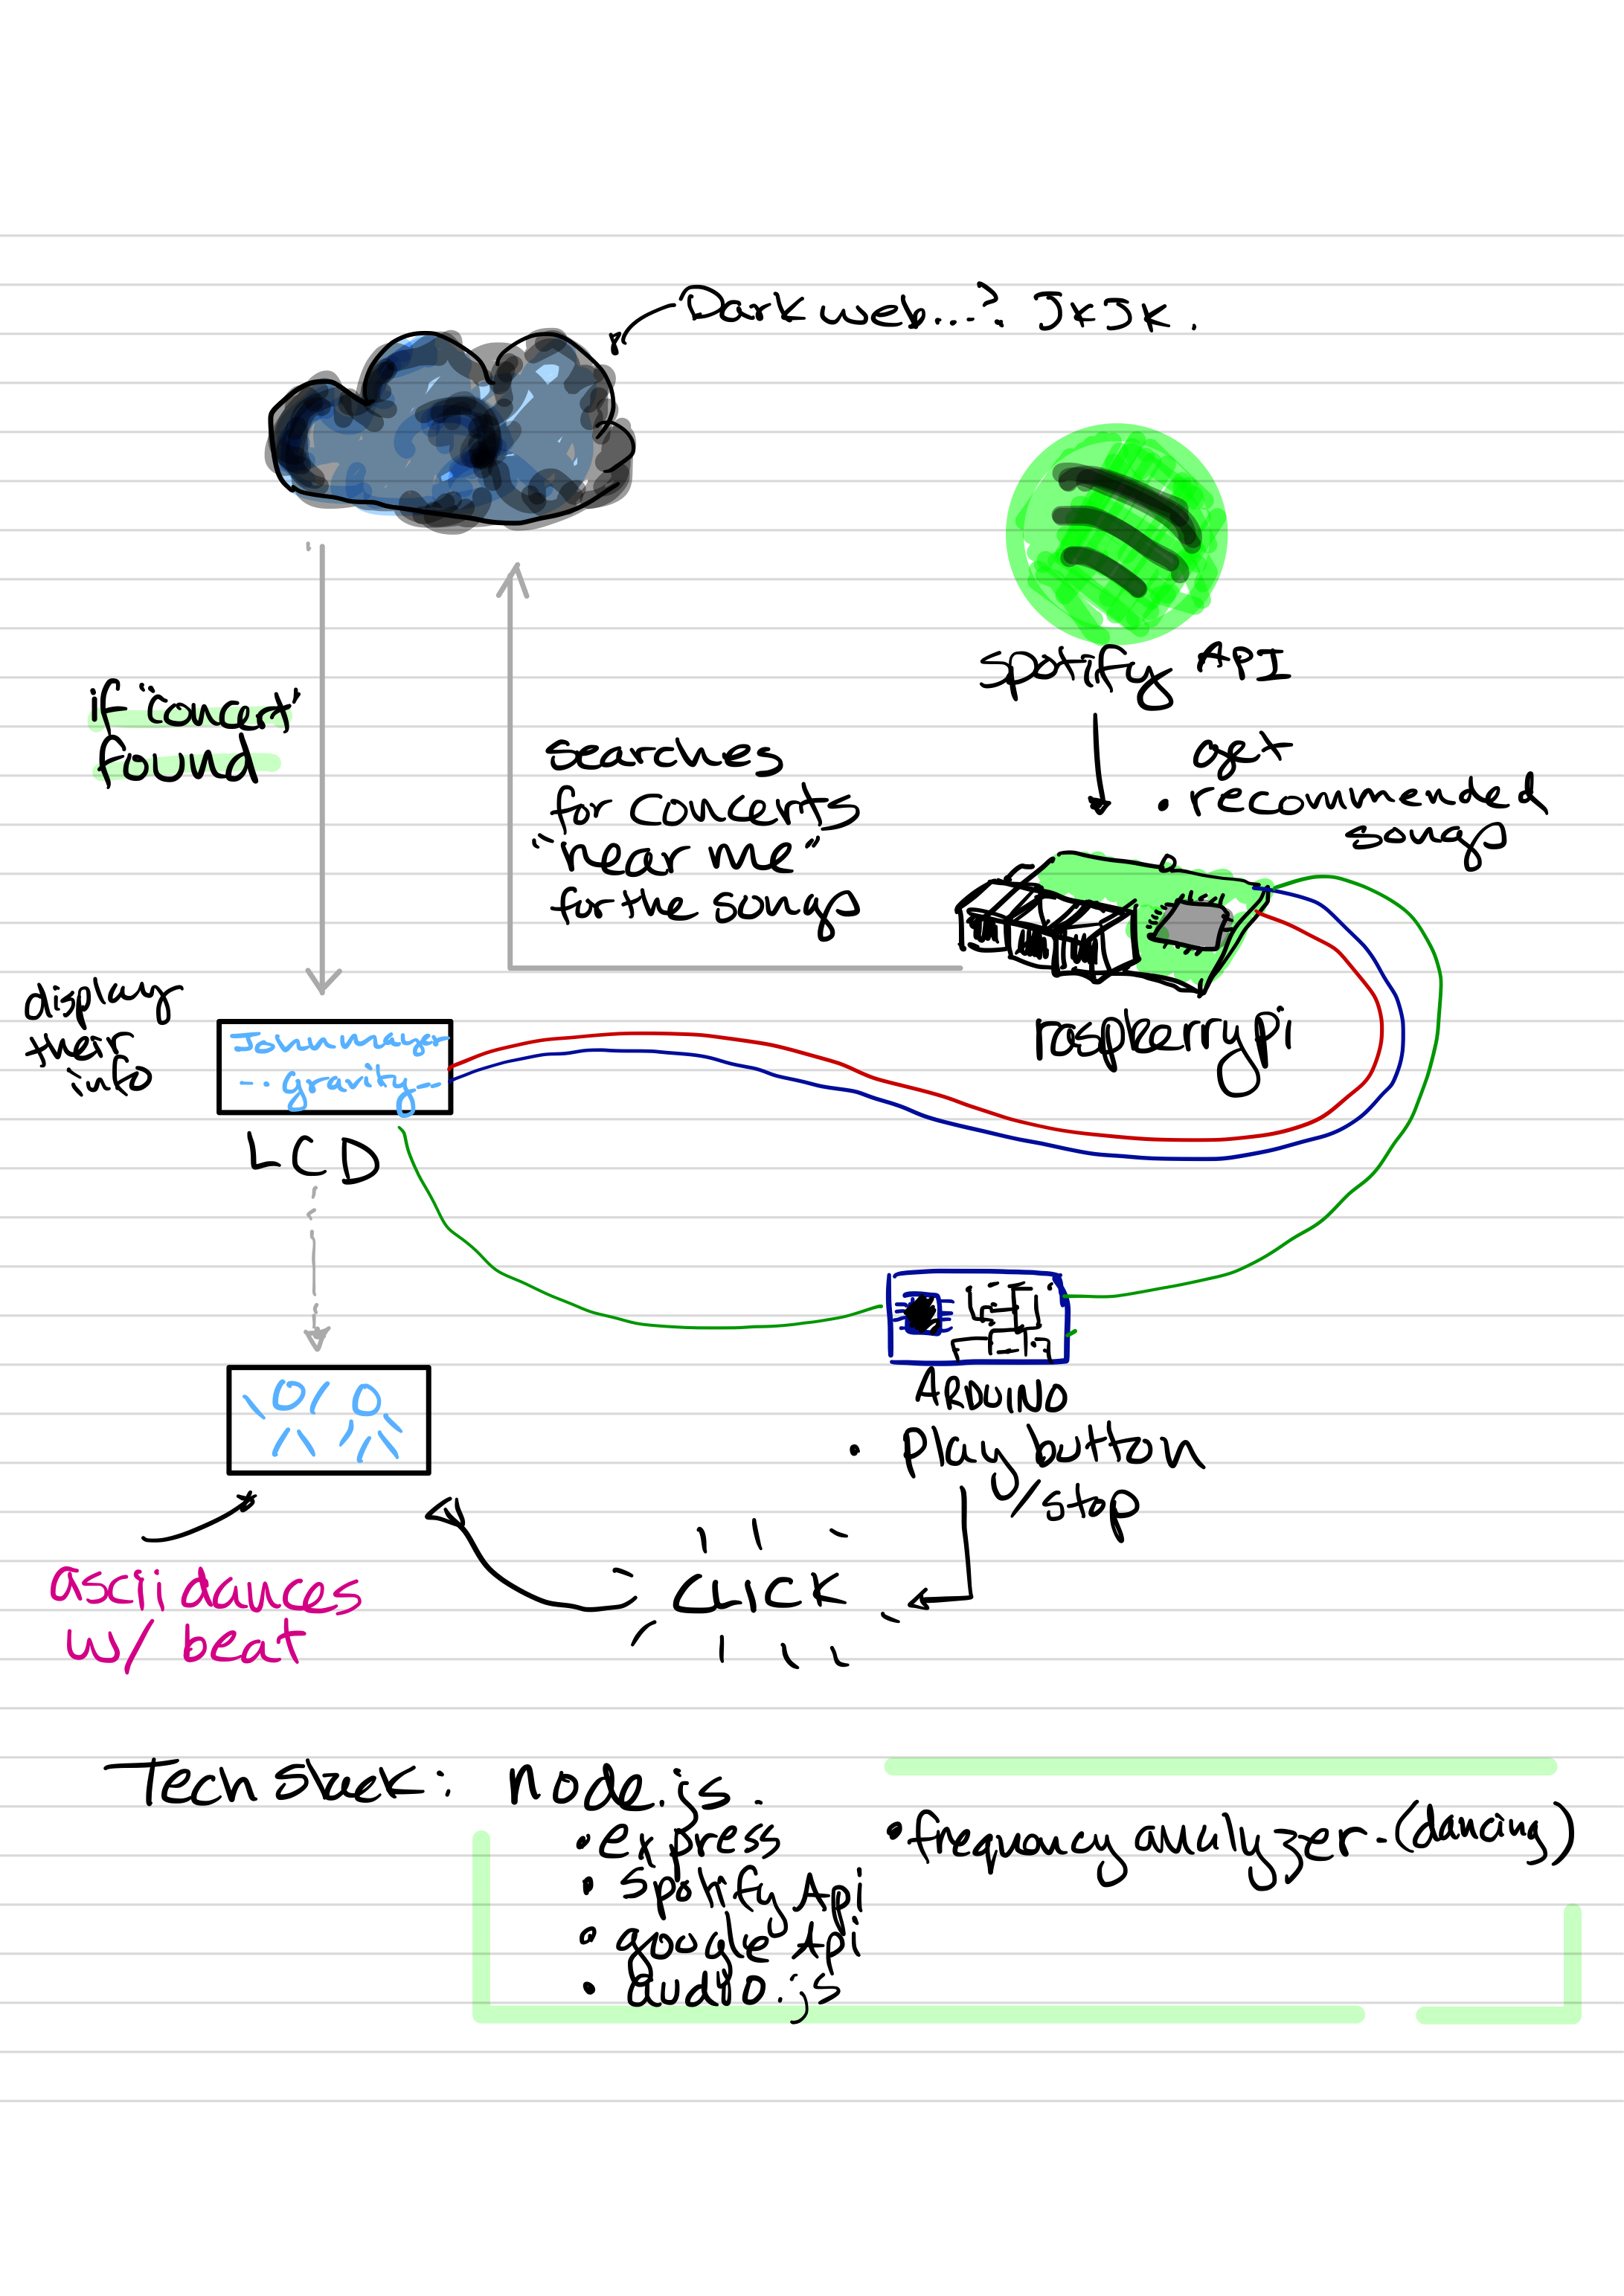 Dark web...? JKJK.
spotify API
get
• recommended
songs
if "concert"
found
searches
for concerts
"near me"
for the songs
raspberry pi
display
their
info
John mayer
-- gravity --
LCD
ARDUINO
• Play button
/stop
CLICK
ascii dances
w/ beat
Tech stack: node.js.
• express
• spotify Api
• google Api
• audio.js
• frequency analyzer. (dancing)